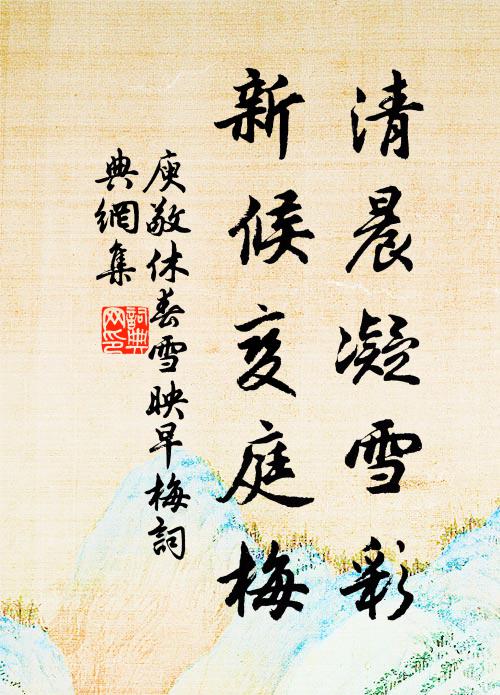 清晨凝雪彩
新候变庭梅
庾敬休春雪映早梅詞
典網集
詞典
网印